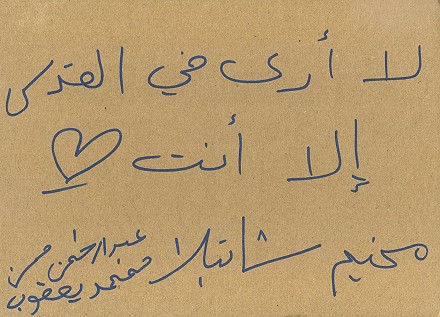 لا أرى في القدس
إلا أنت
مخيم شاتيلا
عبدالرحمن حسن
محمد يعقوب